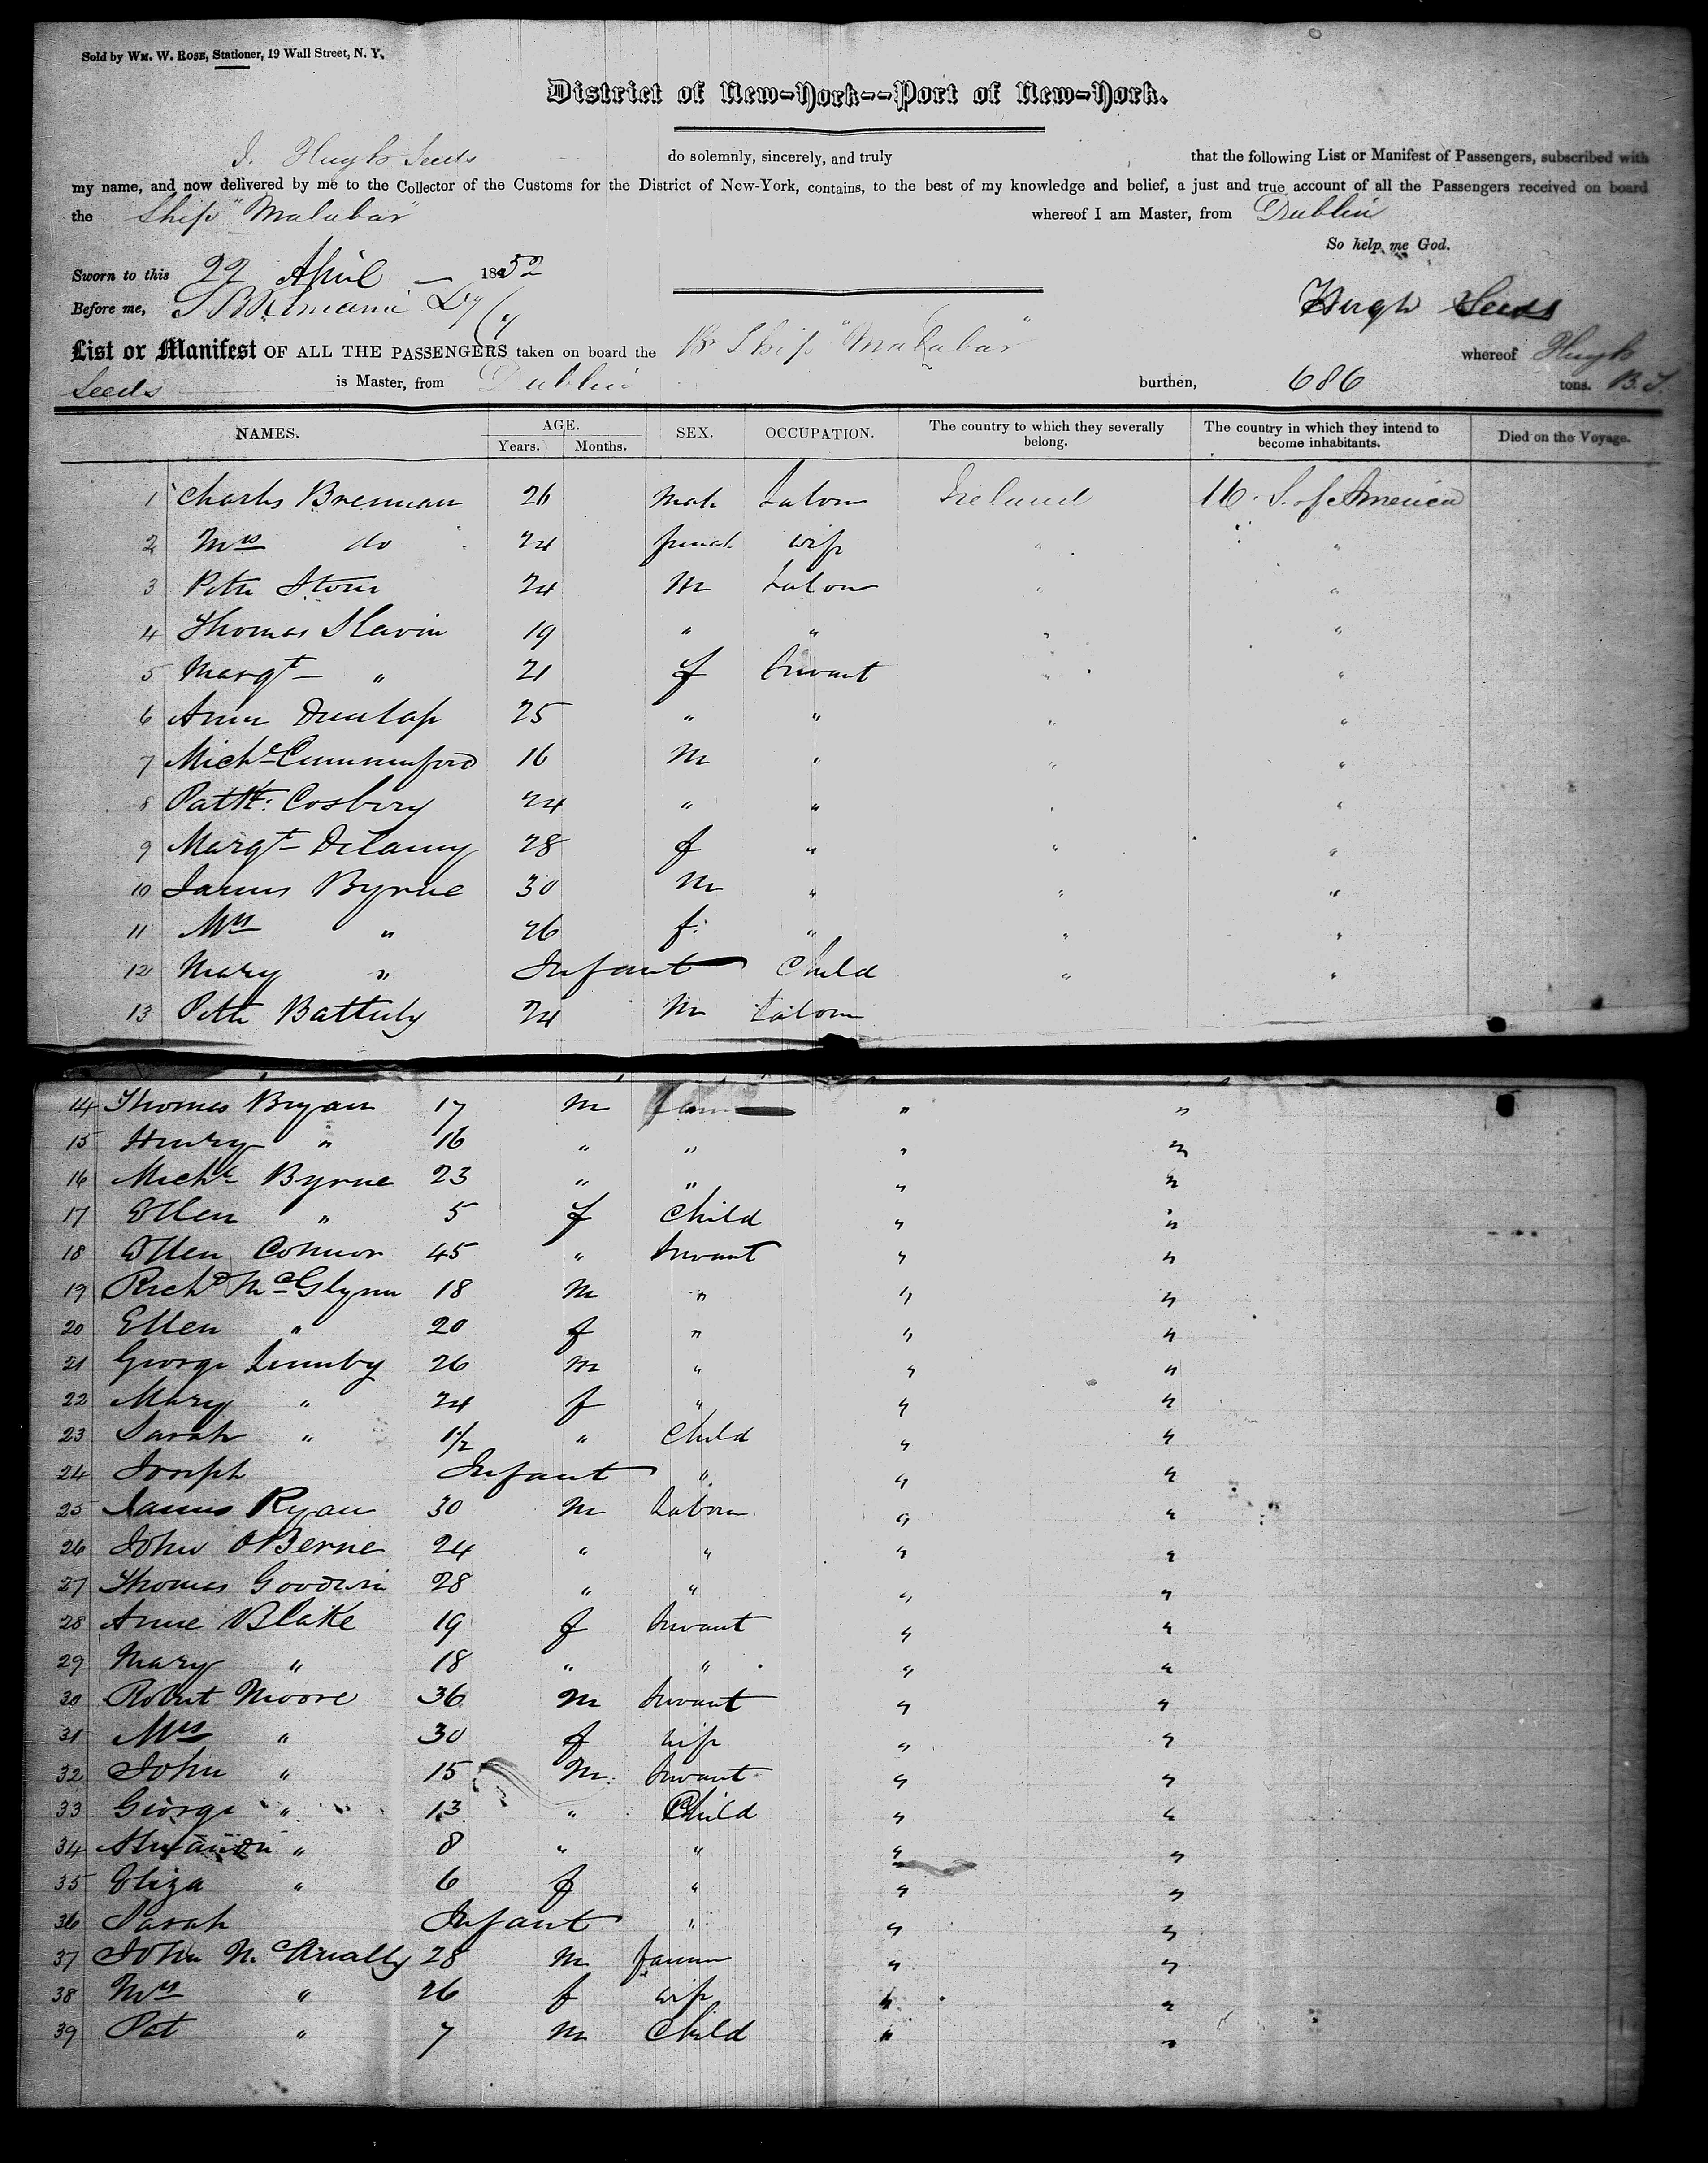 Sold by WM. W. ROSE, Stationer, 19 Wall Street, N. Y.
District of New-York--Port of New-York.
I. Hugh Seeds do solemnly, sincerely, and truly that the following List or Manifest of Passengers, subscribed with
my name, and now delivered by me to the Collector of the Customs for the District of New-York, contains, to the best of my knowledge and belief, a just and true account of all the Passengers received on board
the Ship "Malabar" whereof I am Master, from Dublin
So help me God.
Sworn to this 22 April 1852
Before me,
Hugh Seeds
List or Manifest OF ALL THE PASSENGERS taken on board the Br Ship "Malabar" whereof Hugh
Seeds is Master, from Dublin burthen, 686 tons. B.T.
NAMES. AGE. SEX. OCCUPATION. The country to which they severally belong. The country in which they intend to become inhabitants. Died on the Voyage.
Years. Months.
1 Charles Brennan 26 Male Labour Ireland U. S. of America
2 Mrs do 24 female wife " "
3 Peter 24 M Labour " "
4 Thomas Slavin 19 " " " "
5 Margt " 21 f Servant " "
6 Anne Dunlap 25 " " " "
7 Michl 16 M " " "
8 Patk: Cosbery 24 " " " "
9 Margt Delanny 28 f " " "
10 James Byrne 30 M " " "
11 Mrs " 26 f. " " "
12 Mary " Infant Child " "
13 Peter Battuly 24 M Labour
14 Thomas Bryan 17 M " "
15 Henry " 16 " " " "
16 Michl Byrne 23 " " " "
17 Ellen " 5 f Child " "
18 Ellen Connor 45 " Servant " "
19 Richd McGlynn 18 M " " "
20 Ellen " 20 f " " "
21 George 26 M " " "
22 Mary " 24 f " " "
23 Sarah " 1½ " Child " "
24 Joseph Infant " " "
25 James Ryan 30 M Labour " "
26 John OBerne 24 " " " "
27 Thomas Goodwin 28 " " " "
28 Anne Blake 19 f Servant " "
29 Mary " 18 " " " "
30 Robert Moore 36 M Servant " "
31 Mrs " 30 f wife " "
32 John " 15 M. Servant " "
33 George " 13 " Child " "
34 " 8 " " " "
35 Eliza " 6 f " " "
36 Sarah Infant " " "
37 John McAnally 28 M farmer " "
38 Mrs " 26 f wife " "
39 Pat " 7 M Child " "